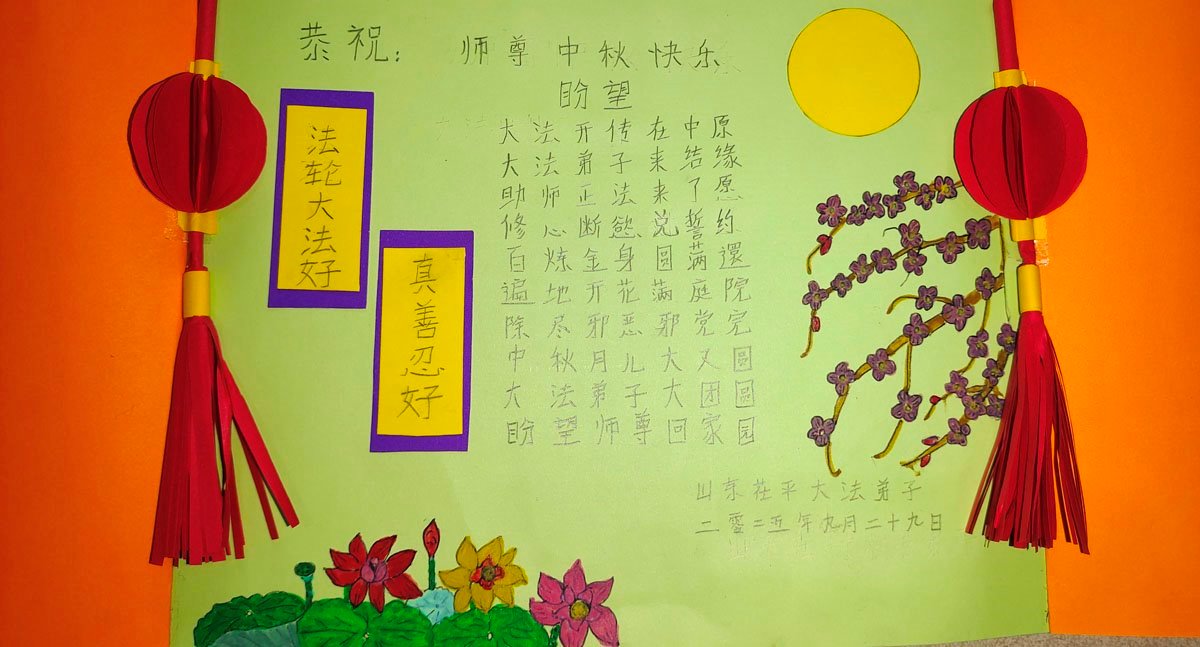 恭祝：师尊中秋快乐
盼望
大法开传在中原
大法弟子来结缘
助师正法来了愿
修心断慾兑誓约
百炼金身圆满還
遍地开花满庭院
除尽邪恶邪党完
中秋月儿大又圆
大法弟子大团圆
盼望师尊回家园
法轮大法好
真善忍好
山东茌平大法弟子
二零二五年九月二十九日